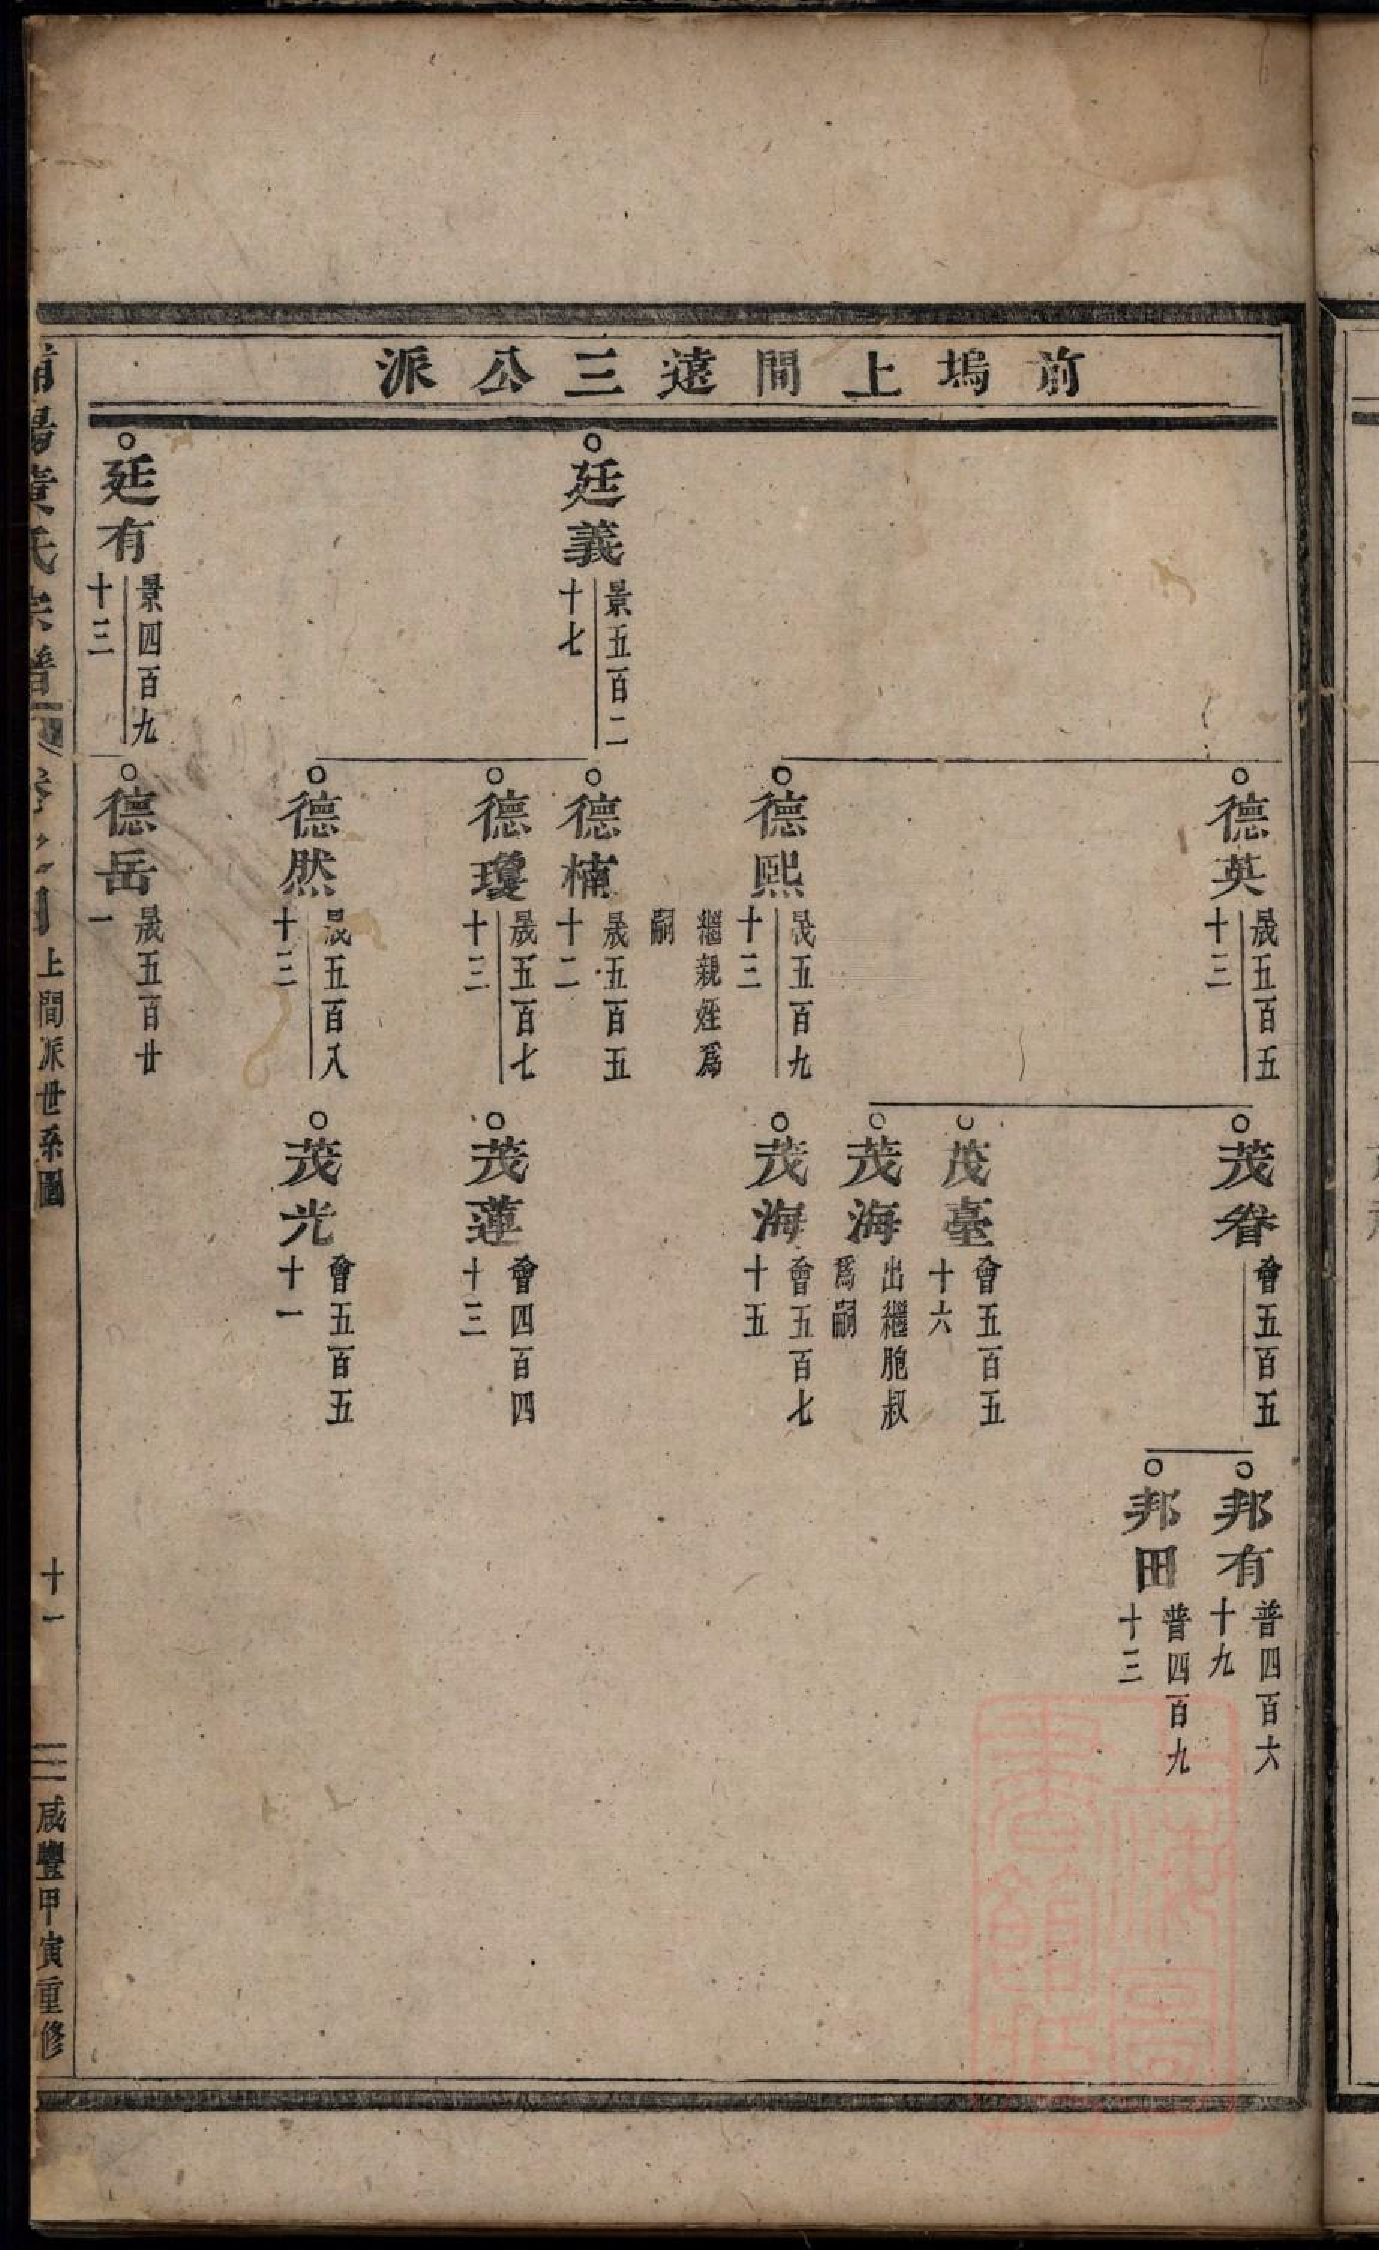 前塢上間遠三公派
德英 晟五百五十三
茂眷 會五百五
邦有 普四百六十九
邦田 普四百九十三
茂臺 會五百五十六
茂海 出繼胞叔爲嗣
德熙 晟五百九十三
繼親姪爲嗣
茂海 會五百七十五
廷義 景五百二十七
德楠 晟五百五十二
德瓊 晟五百七十三
茂蓮 會四百四十三
德然 晟五百八十三
茂光 會五百五十一
廷有 景四百九十三
德岳 晟五百廿一
浦陽黃氏宗譜
卷之
上間派世系圖
十一
咸豐甲寅重修
上海圖書館藏